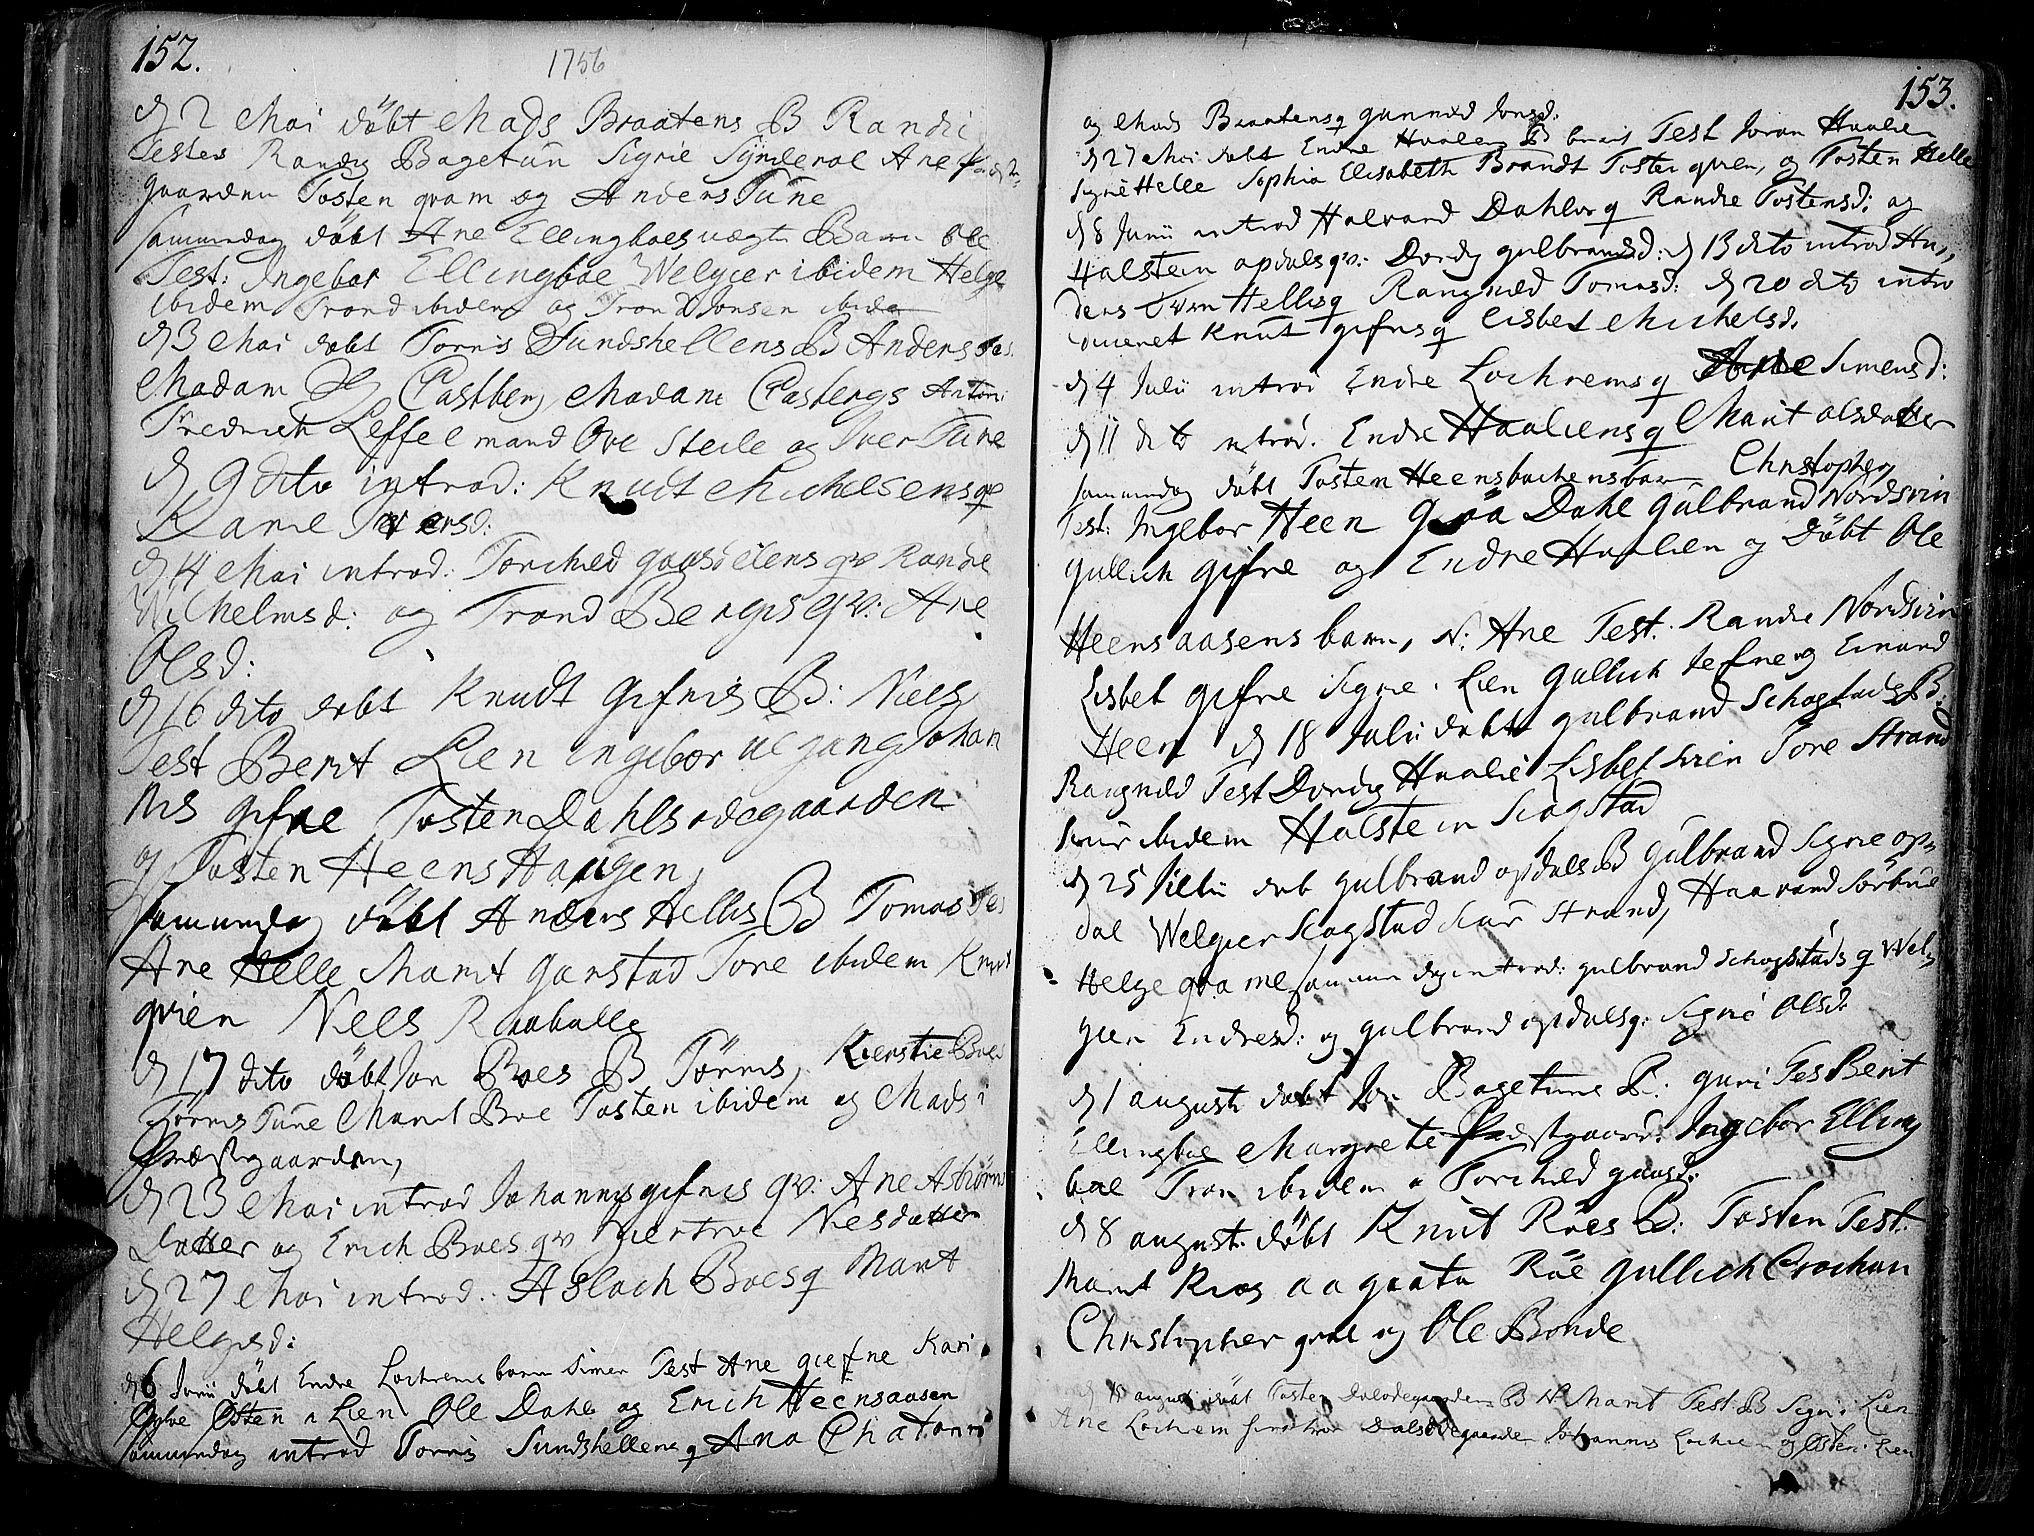 152.
1756
d 2 Mai döbt Mads Braatens B Randi
Testes Randig Bagetun Sigrie Synderol Ane
gaarden Tosten qvam og Anders Tune
sammedag döbt Ane Ellingboes uægte Barn Ole
Test: Ingebor Ellingboe Welgier ibidem Helge
ibidem Trond ibidem og Trond Jonsen ibidem
d 3 Mai døbt Torris Sundshellens B Anders Tes.
Madam Castberg, Madam Castbergs Anton
Fredrich Leffelmand Ove Steile og Iver Tune
d 9 dito introd: Knudt Michelsens q
Karie Iversd:
d 14 Mai introd: Torchild gaasdelens qv Randie
Wilhelmsd: og Trond Bergis qv: Ane
Olsd:
d 16 dito døbt Knudt Gifnis B: Niels
Test Berit Lien ingebor Johan
nis gifne Tosten Dahlsødegaarden
og Tosten Heens Haugen,
sammedag döbt Anders Hellis B Tomas Tes
Ane Helle Marit Garstad Tore ibidem Knut
qvien Niels Raaballe
d 17 dito döbt Jon Boes B Törris, Kierstie Boe
Törris Tune Marit Boe Tosten ibidem og Mads i
Præstegaarden,
d 23 Mai introd Johannis gifnis qv: Ane Asbiørns
Datter og Erich Boes qv giertrue Nielsdatter
d 27 Mai introd. Aslach Boes q Marit
Helgesd:
d 6 Junii döbt Endre Lochrems barn Simen Test Ane giefne Kari
Østen Lien Ole Dahl og Erich Heensaasen
sammedag introd Torris Sundshellens q Ana Chatarin
153.
og Mads Braatens q gunnild Jonsd.
d 27 Mai døbt Endre Haaliens B berit Test Joran Haalien
Signe Helle Sophia Elisabeth Brandt Tosten qvien, og Tosten Helle
d 8 Junii introd Halvand Dahls q Randie Tostensd: og
Halstein opdals qv: Dordij gulbrandsd: d 13 dito introd An,
ders Hellis q Rangnild Tomasd: d 20 dito intro
duceret Knut gifnis q Lisbet Michelsd.
d 4 Julii introd Endre Lochrems q Simensd:
d 11 dito introd. Endre Haaliens q Marit olsdatter
sammedag döbt Tosten Heensbachens barn Christopher,
Test: Ingebor Heen Dahl gulbrand Nordsvin
gullich gifne og Endre Haalien og döbt Ole
Heensaasens barn, N: Ane Test. Randie Nordsvin
Lisbet gifne Signe Lien Gullich Jefne og Einand
Heen d 18 Julii døbt gulbrand Schogstads B.
Rangnild Test Dordij Haalie Lisbet Tore Strand
ibidem Halstein Scogstad
d 25 Julii døb gulbrand opdals B gulbrand Signe op,
dal Welgier Scogstad Strand, Haavand Sörbue
Helge qvame samme dag introd: gulbrand Schogstads q Wel,
gier Endresd: og gulbrand opdals q: Signe Olsd.
d 1 augusti døbt Jon Bagetuns B: guri Tes Berit
Ellingboe Margrete Præstgaard: Ingebor Elling
boe Tron ibidem Torchild gaasd.
d 8 august: döbt Knut Röes B: Tosten Test.
Marit Röe Röe gullich Crochen
Christopher og Ole Bonde
d 15 augusti døbt Tosten Dalsødegaardens B N Marit Test: B Signe Lien
Ane Lochrem Dalsødegaarden Johannis Lochrem og Østen Lien